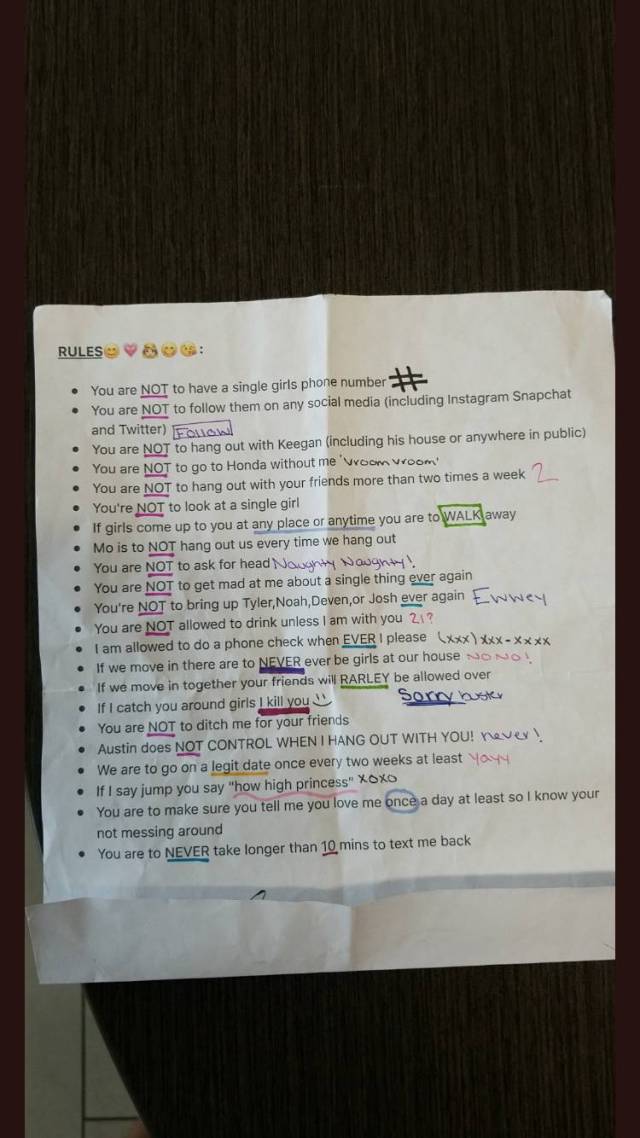 RULES😊💗👸😋😘:
• You are NOT to have a single girls phone number #
• You are NOT to follow them on any social media (including Instagram Snapchat
and Twitter) Follow
• You are NOT to hang out with Keegan (including his house or anywhere in public)
• You are NOT to go to Honda without me 'Vroom vroom'
• You are NOT to hang out with your friends more than two times a week 2
• You're NOT to look at a single girl
• If girls come up to you at any place or anytime you are to WALK away
• Mo is to NOT hang out us every time we hang out
• You are NOT to ask for head Naughty Naughty!
• You are NOT to get mad at me about a single thing ever again
• You're NOT to bring up Tyler,Noah,Deven,or Josh ever again Ewwey
• You are NOT allowed to drink unless I am with you 21?
• I am allowed to do a phone check when EVER I please (xxx) xxx-xxxx
• If we move in there are to NEVER ever be girls at our house NO NO!
• If we move in together your friends will RARLEY be allowed over Sorry buster
• If I catch you around girls I kill you :)
• You are NOT to ditch me for your friends
• Austin does NOT CONTROL WHEN I HANG OUT WITH YOU! never!
• We are to go on a legit date once every two weeks at least Yayy
• If I say jump you say "how high princess" xoxo
• You are to make sure you tell me you love me once a day at least so I know your
not messing around
• You are to NEVER take longer than 10 mins to text me back